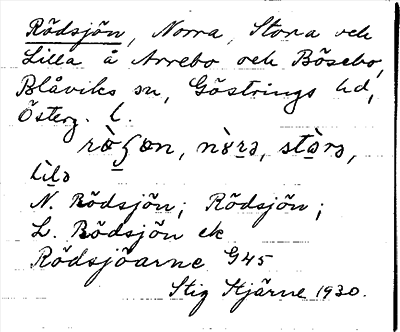 Rödsjön, Norra, Stora och
Lilla å Arrebo och Bösebo,
Blåviks sn, Göstrings hd,
Österg. l.
nò̱ra, stò̱ra,
lìla
N. Rödsjön; Rödsjön;
L. Rödsjön ek
Rödsjöarne G45
Stig Stjärne 1930.